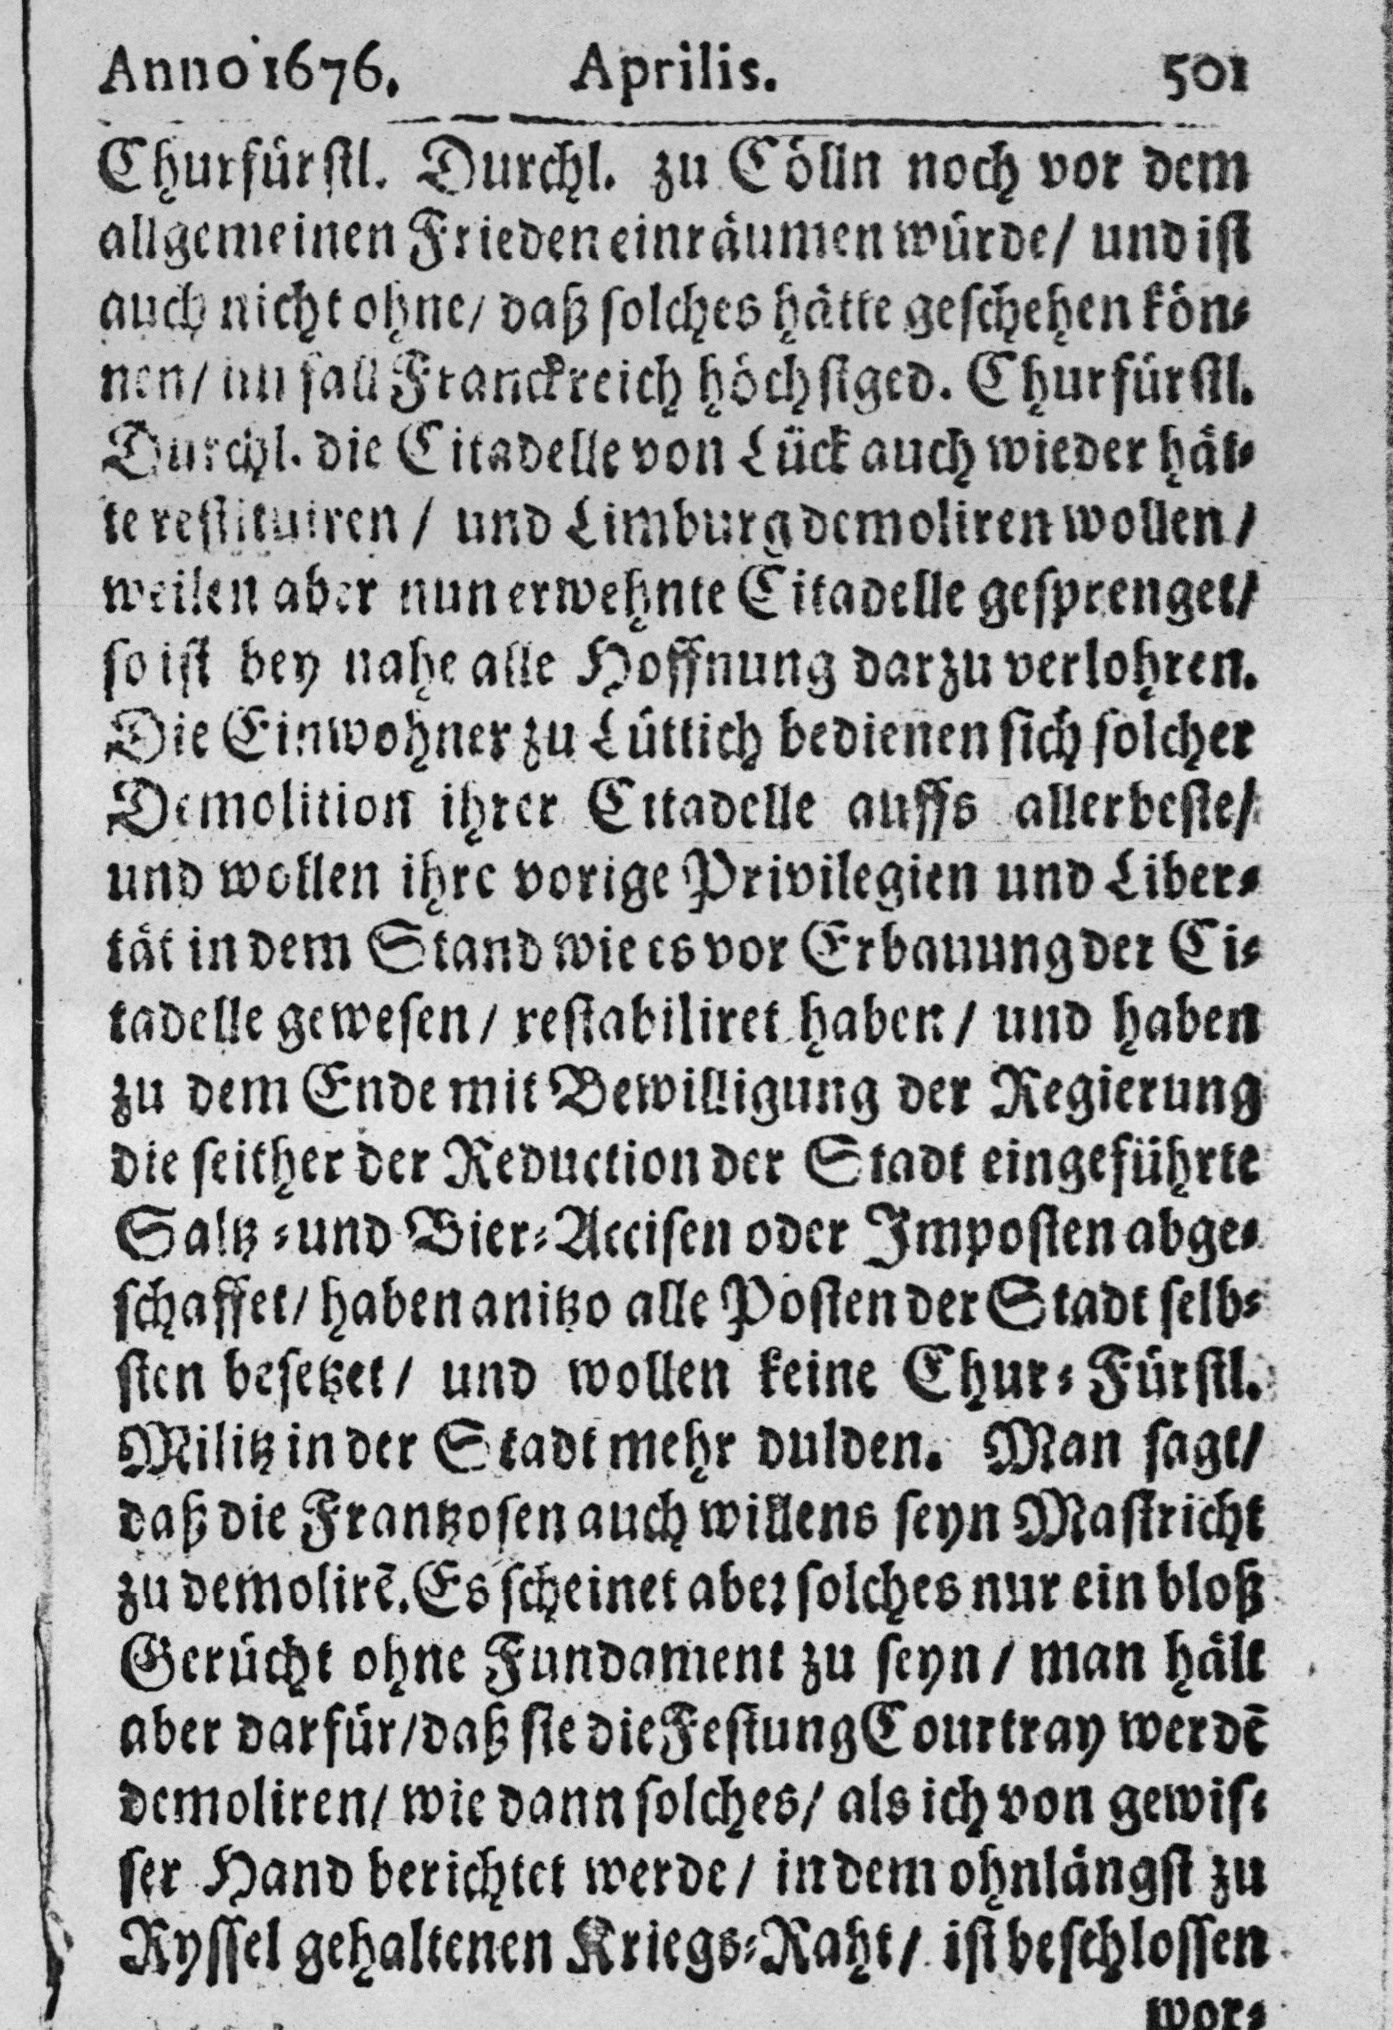 Anno 1676. Aprilis. 501
Churfürstl. Durchl. zu Cölln noch vor dem
allgemeinen Frieden einräumen würde/ und ist
auch nicht ohne/ daß solches hätte geschehen kön-
nen/ im fall Franckreich höchstged. Churfürstl.
Durchl. die Citadelle von Lück auch wieder hät-
te restituiren/ und Limburg demoliren wollen/
weilen aber nun erwehnte Citadelle gesprenget/
so ist bey nahe alle Hoffnung darzu verlohren.
Die Einwohner zu Lüttich bedienen sich solcher
Demolition ihrer Citadelle auffs allerbeste/
und wollen ihre vorige Privilegien und Liber-
tät in dem Stand wie es vor Erbauung der Ci-
tadelle gewesen/ restabiliret haben/ und haben
zu dem Ende mit Bewilligung der Regierung
die seither der Reduction der Stadt eingeführte
Saltz-und Bier-Accisen oder Imposten abge-
schaffet/ haben anitzo alle Posten der Stadt selb-
sten besetzet/ und wollen keine Chur-Fürstl.
Militz in der Stadt mehr dulden. Man sagt/
daß die Frantzosen auch willens seyn Mastricht
zu demolirē. Es scheinet aber solches nur ein bloß
Gerücht ohne Fundament zu seyn/ man hält
aber darfür/ daß sie die Festung Courtray werdē
demoliren/ wie dann solches/ als ich von gewis-
ser Hand berichtet werde/ in dem ohnlängst zu
Ryssel gehaltenen Kriegs-Raht/ ist beschlossen
wor-